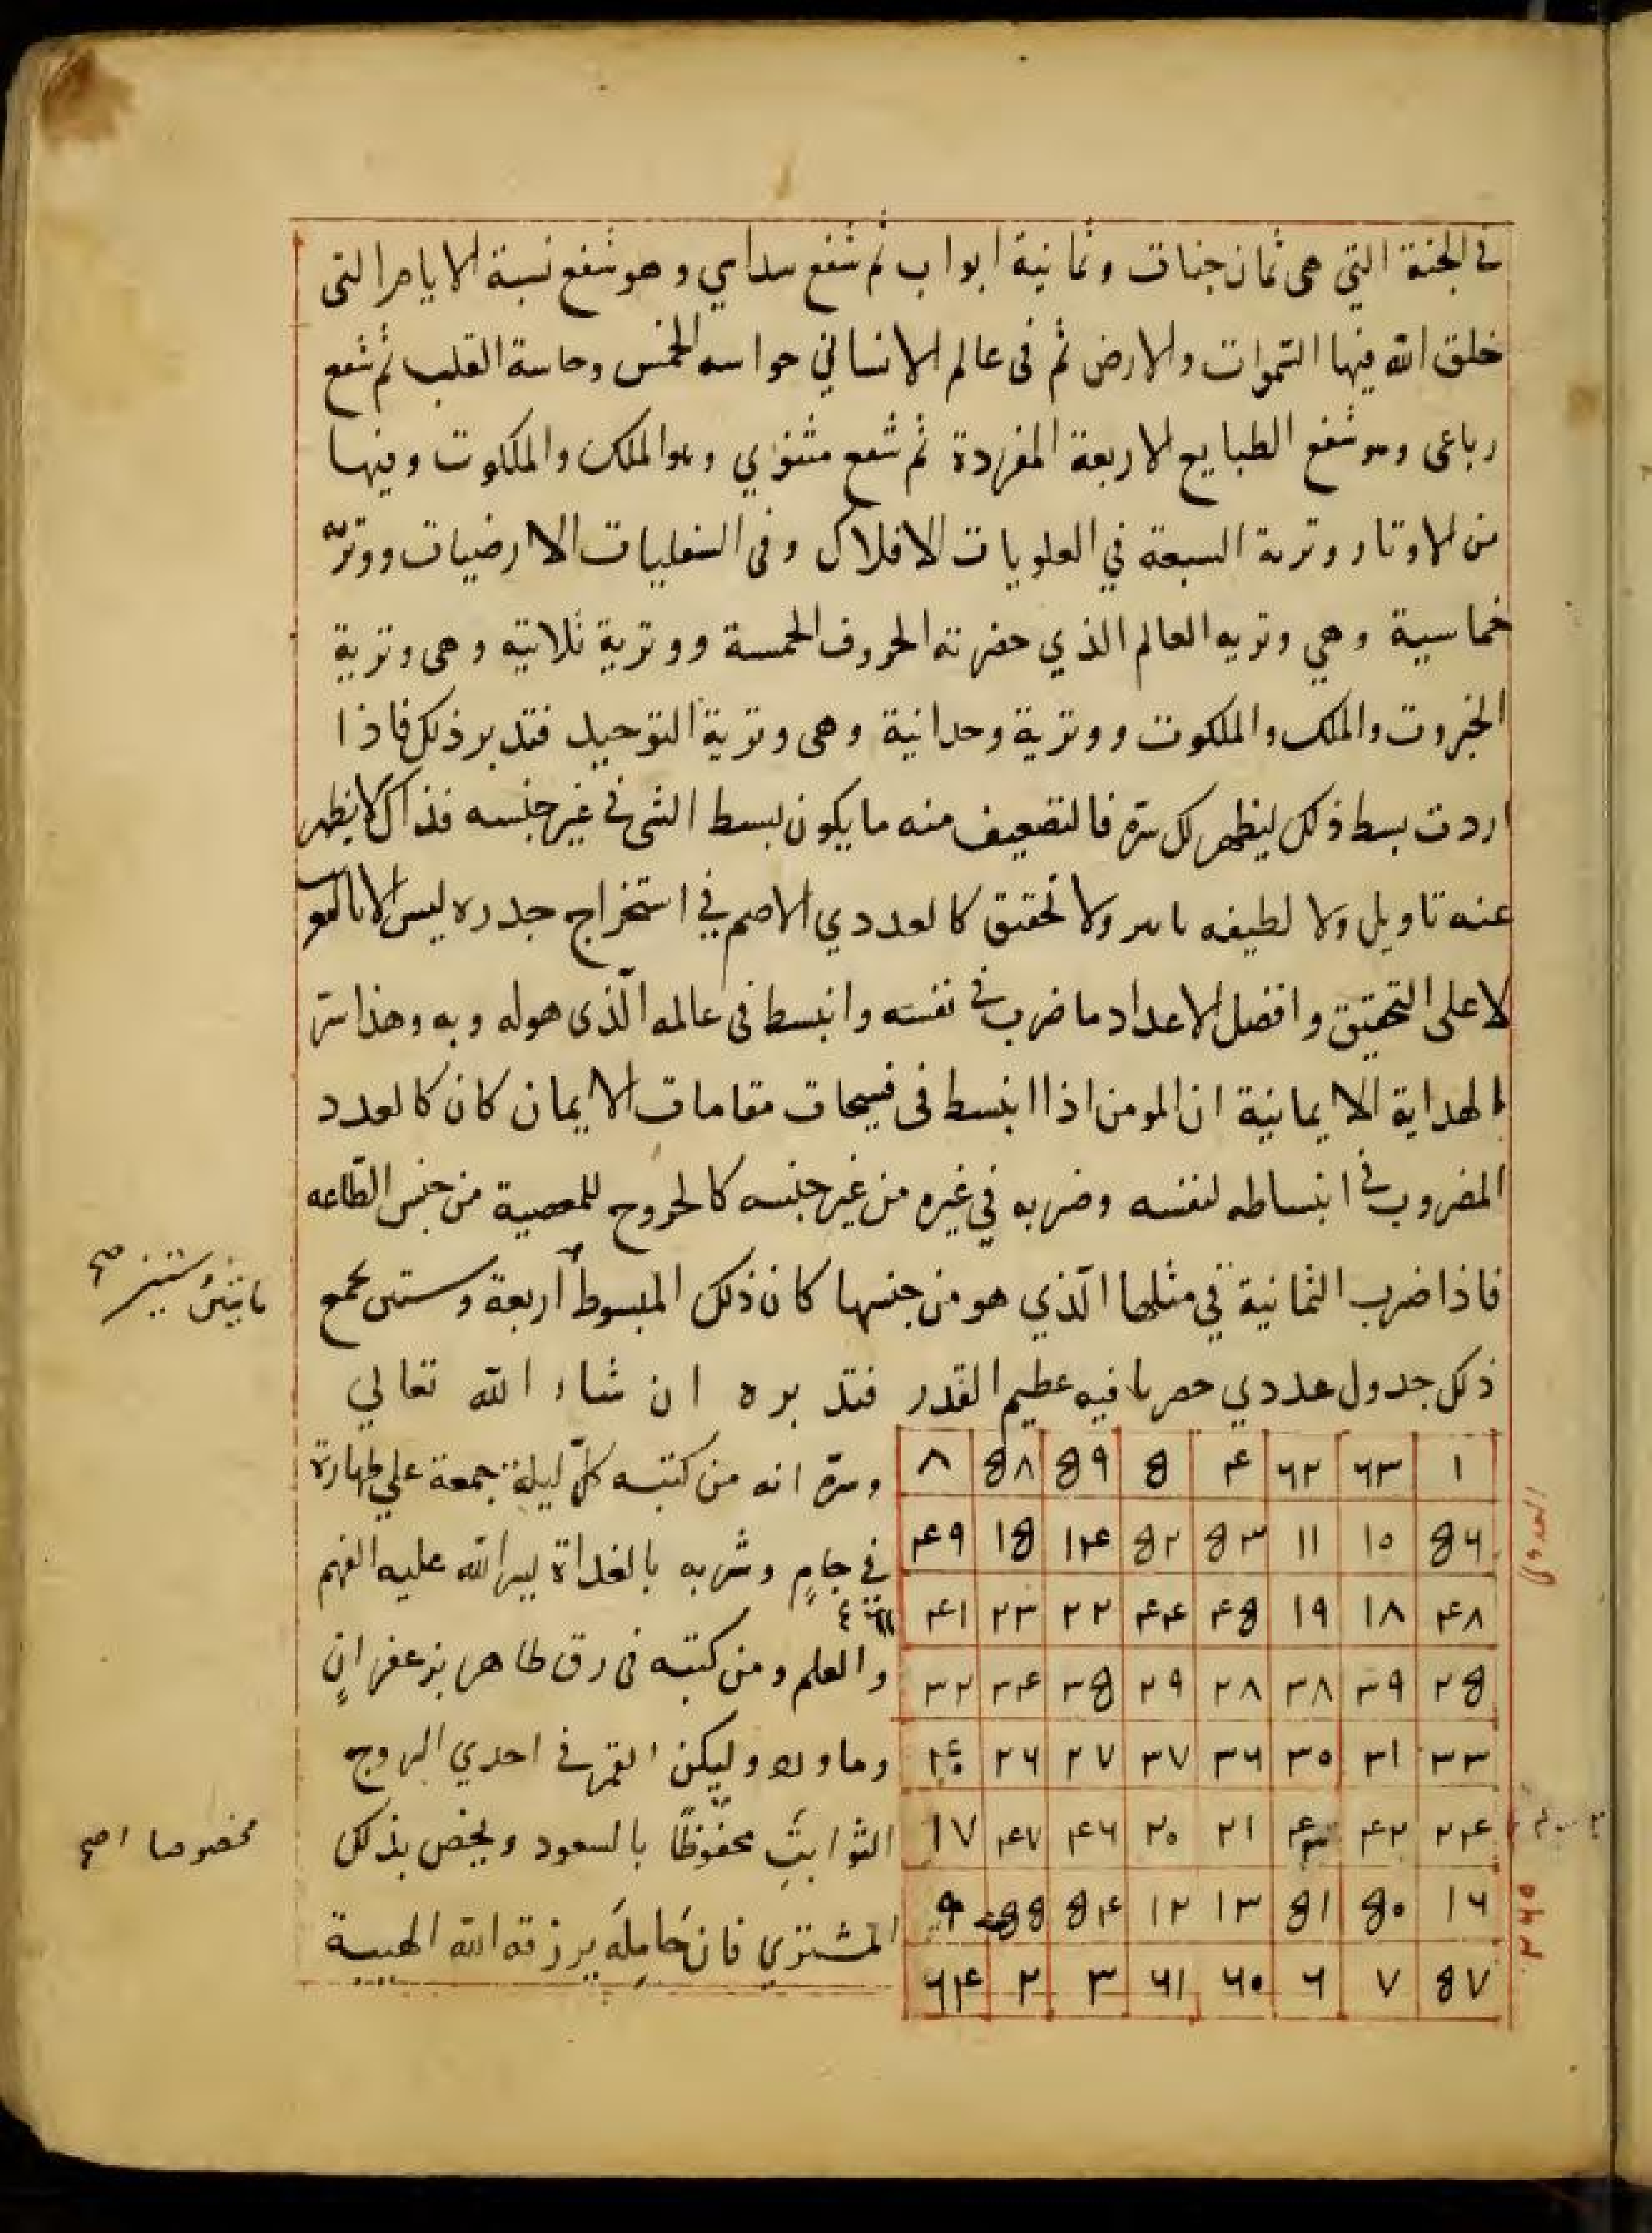 في الجنة التي هي ثمان جنات وثمانية ابواب ثم شفع سداسي وهو شفع نسبة الايام التي
خلق الله فيها السموات والارض ثم في عالم الانساني حواسه الخمس وحاسة القلب ثم شفع
رباعي وهو شفع الطبايع الاربعة المفردة ثم شفع مثنوي وهو الملك والملكوت وفيها
من الاوتار وترية السبعة في العلويات الافلاك وفي السفليات الارضيات ووترية
خماسية وهي وتريه العالم الذي حضرته الحروف الخمسة ووترية ثلاثيه وهي وترية
الجبروت والملك والملكوت ووترية وحدانية وهي وترية التوحيد فتدبر ذلك فاذا
اردت بسط ذلك ليظهر لك سره فالتضعيف منه ما يكون لبسط الشي في غير جنسه فذاك لا يظهر
عنه تاويل ولا لطيفه ولا تحقيق كالعددي الاصم في استخراج جدره ليس الا بالتقريب
لا على التحقيق وافضل الاعداد ما ضرب في نفسه وانبسط في عالمه الذى هوله وبه وهذا سر
الهداية الايمانية ان المومن اذا انبسط في فسيحات مقامات الايمان كان كالعدد
المضروب في انبساطه لنفسه وضربه في غيره من غير جنسه كالخروج للمعصية من جنس الطاعه
فاذا ضرب الثمانية في مثلها الذي هو من جنسها كان ذلك المبسوط اربعة وستين يجمع
مايتين وستين صح
ذلك جدول عددي حصر ما فيه عظيم القدر فتدبره ان شاء الله تعالي
١ ٦٣ ٦٢ ۴ 8 8٩ 8٨ ٨
8٦ ١٠ ١١ 8٣ 8٢ ١۴ ١8 ۴٩
۴٨ ١٨ ١٩ ۴8 ۴۴ ٢٢ ٢٣ ۴١
٢8 ٣٩ ٣٨ ٢٨ ٢٩ ٣8 ٣۴ ٣٢
٣٣ ٣١ ٣٠ ٣٦ ٣٧ ٢٧ ٢٦ ۴٠
٢۴ ۴٢ ۴٣ ٢١ ٢٠ ۴٦ ۴٧ ١٧
١٦ 8٠ 8١ ١٣ ١٢ 8۴ 88 ٩
8٧ ٧ ٦ ٦٠ ٦١ ٣ ٢ ٦۴
٢٦٠
وسره انه من كتبه كل ليلة جمعة علي طهارة
في جام وشربه بالغداة يسر الله عليه الفهم
والعلم ومن كتبه في رق طاهر بزعفران
وماورد وليكن القمر في احدي البروج
الثوابت محفوظا بالسعود ويخص بذلك
مخصوصا صح
المشتري فان حامله يرزقه الله الهيبة